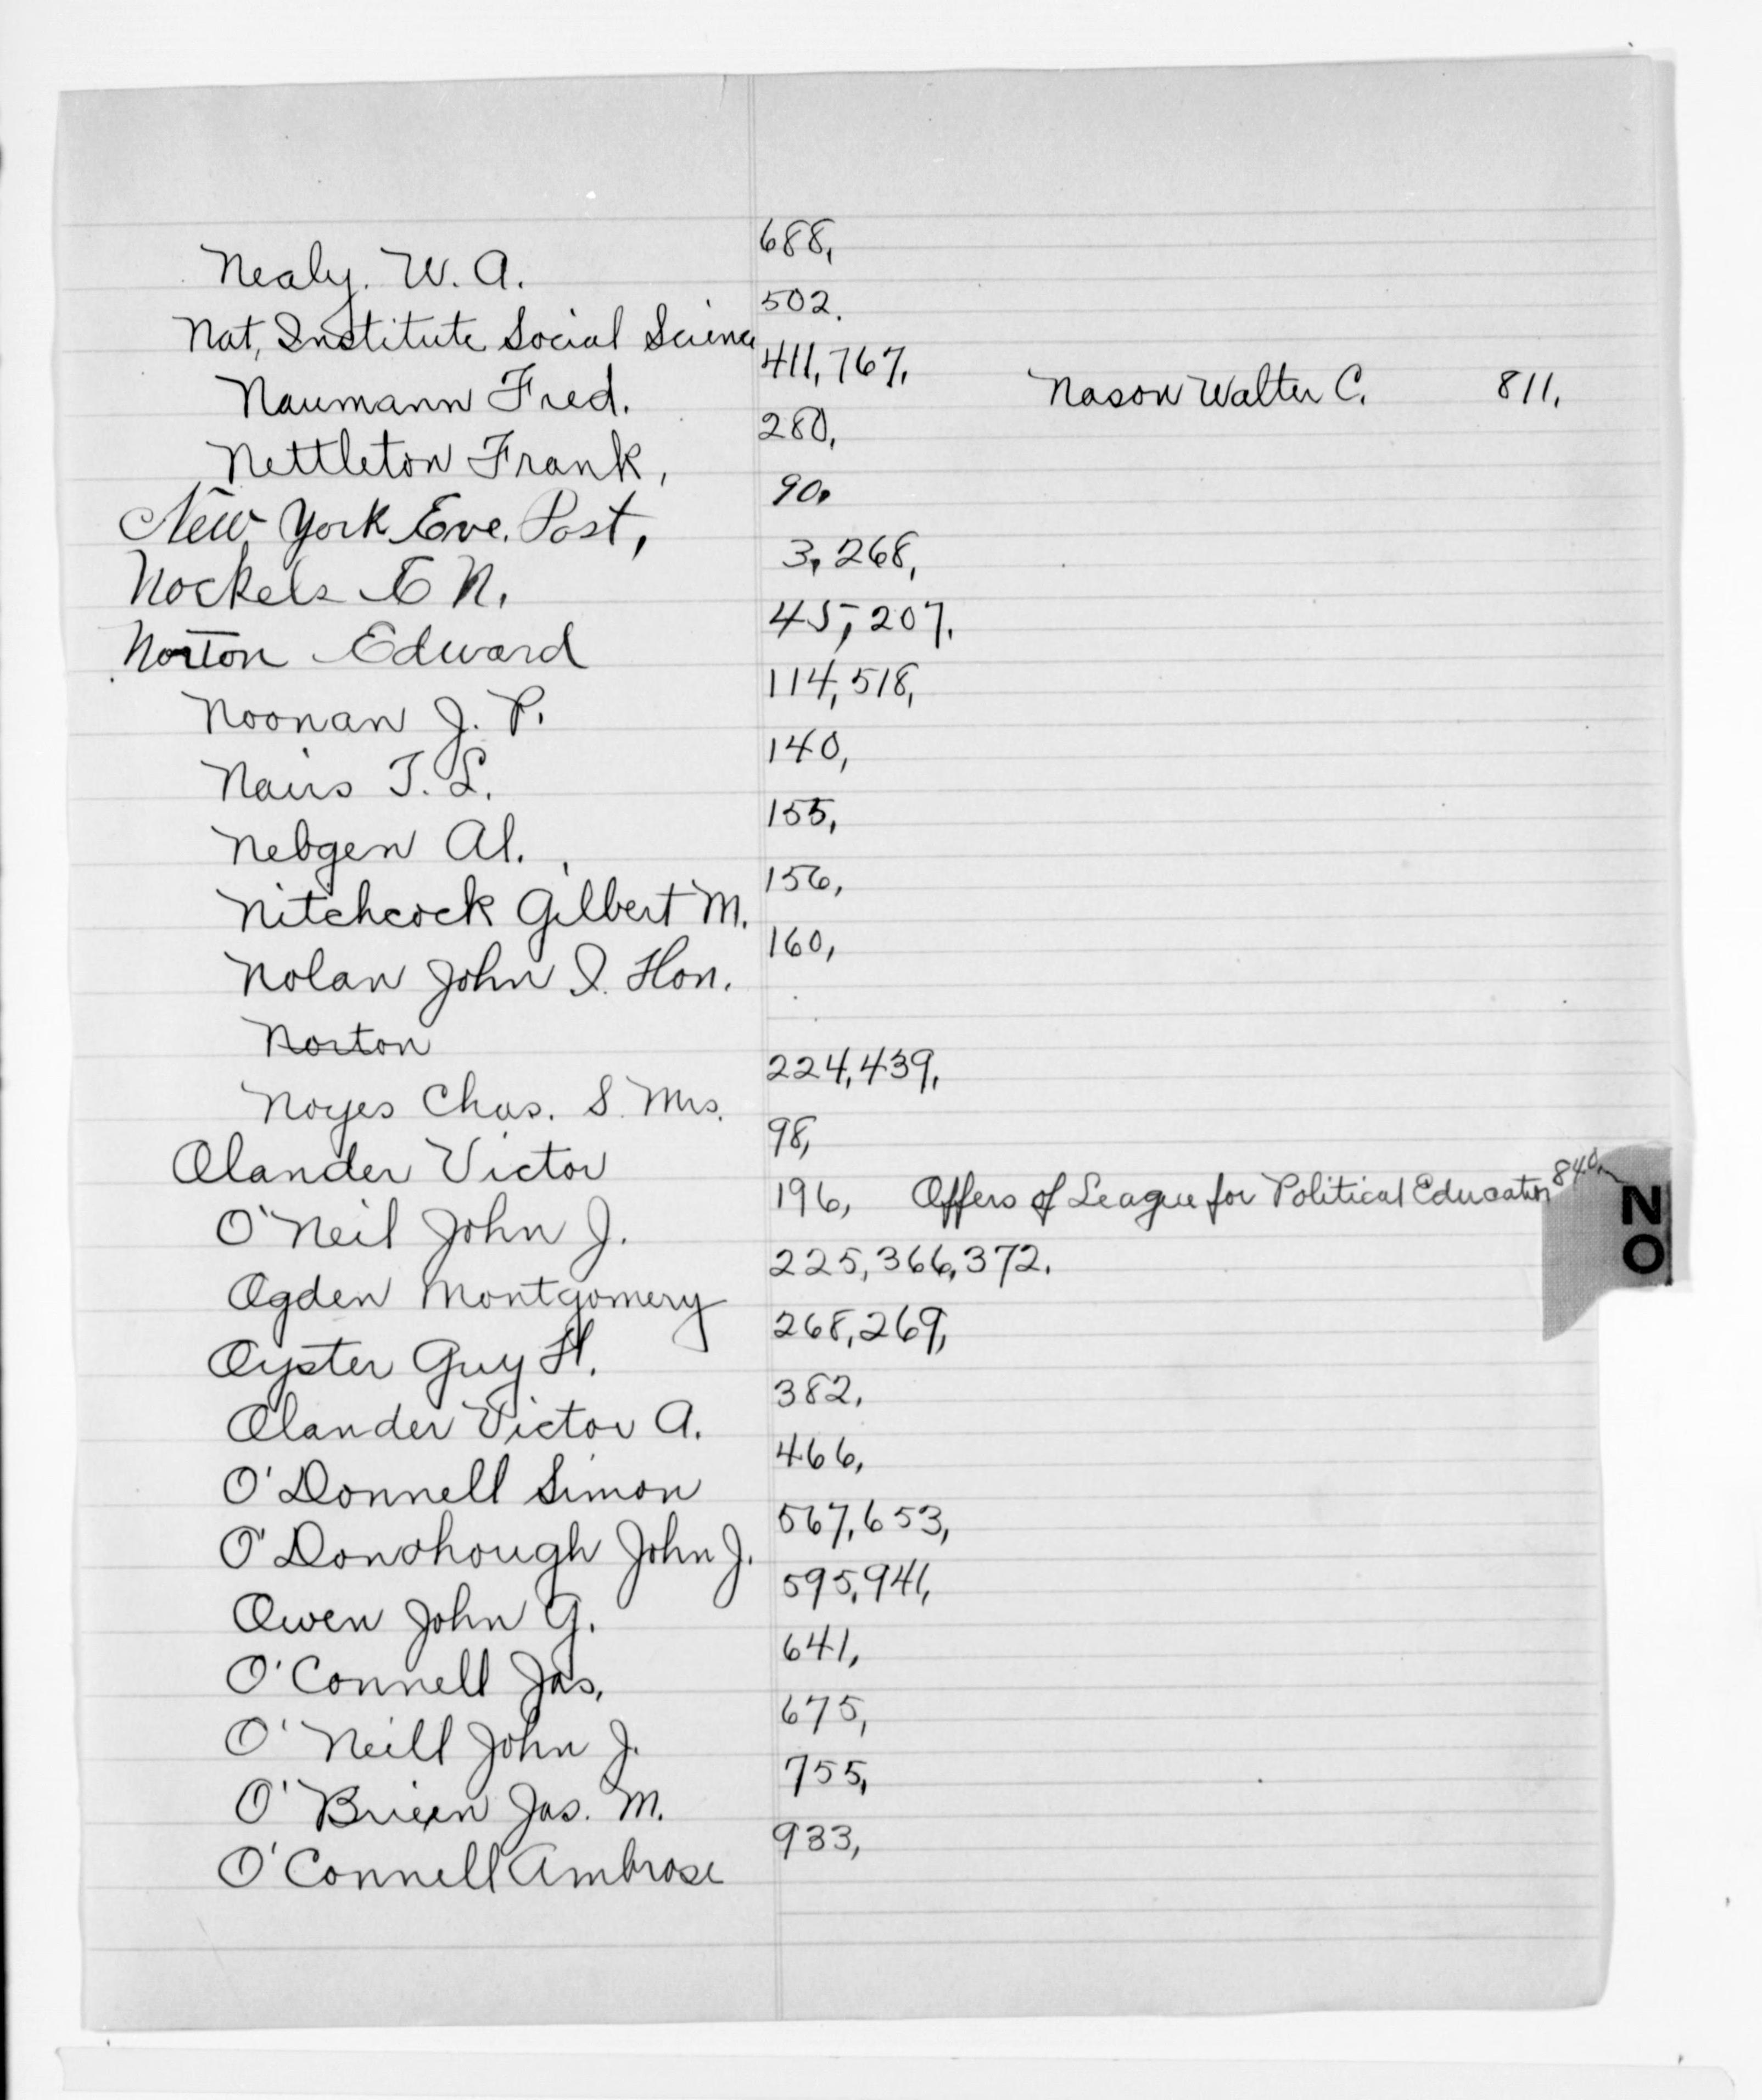 Nealy. W. A. 688,
Nat, Institute Social Science 502.
Naumann Fred. 411, 767,
Nason Walter C. 811,
Nettleton Frank, 280,
New York Eve. Post, 90,
Nockels E N. 3, 268,
Norton Edward 45, 207,
Noonan J. P. 114, 518,
Nairs T. L. 140,
Nebgen Al. 155,
Nitchcock Gilbert M. 156,
Nolan John I. Hon. 160,
Norton
Noyes Chas. S. Mrs. 224, 439,
Olander Victor 98,
O'Neil John J. 196, Offers of League for Political Education 840,
Ogden Montgomery 225, 366, 372.
Oyster Guy H. 268, 269,
Olander Victor A. 382,
O'Donnell Simon 466,
O'Donohough John J. 567, 653,
Owen John G. 595, 941,
O'Connell Jas, 641,
O'Neill John J. 675,
O'Brien Jas. M. 755,
O'Connell Ambrose 933,
N
O